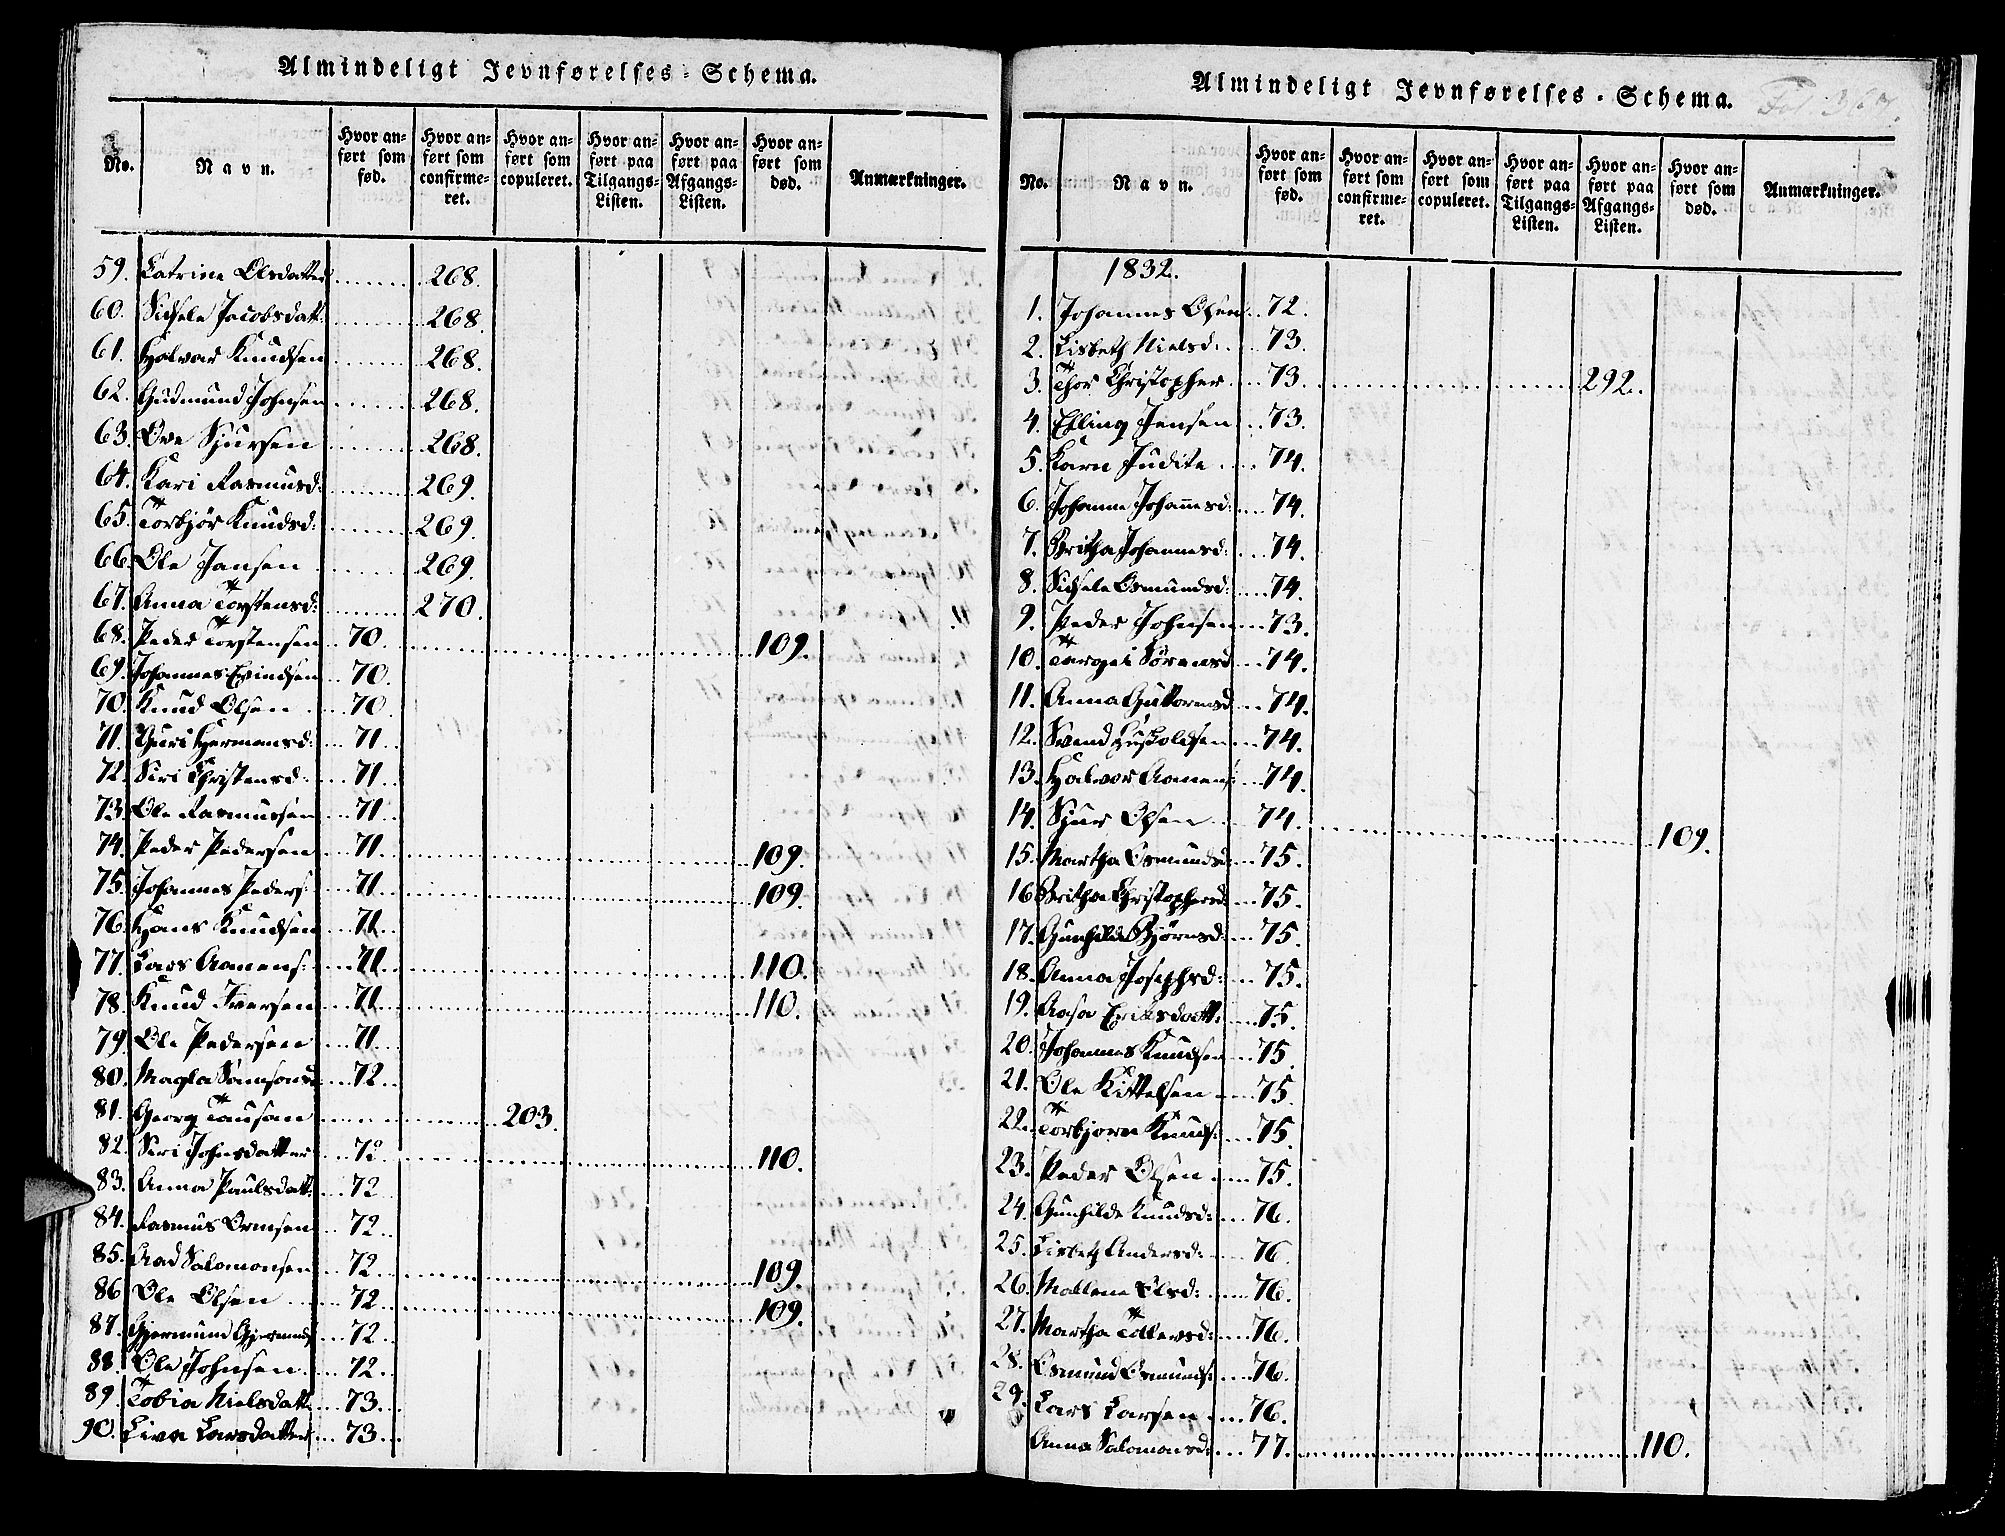 Almindeligt Jevnførelses-Schema.
No. Navn. Hvor anført som fød. Hvor anført som confirmeret. Hvor anført som copuleret. Hvor anført paa Tilgangs-Listen. Hvor anført paa Afgangs-Listen. Hvor anført som død. Anmærkninger.
59. Catrine Olsdatter 268.
60. Sidsele Jacobsdatt: 268.
61. Halvar Knudsen 268.
62. Gudmund Johnsen 268.
63. Ove Sjursen 268.
64. Kari Rasmusd: 269.
65. Torbjør Knudsd: 269.
66. Ole Jansen 269.
67. Anna Torstensd: 270.
68. Peder Torstensen 70. 109.
69. Johannes Evindsen 70.
70. Knud Olsen 70.
71. Guri Hermansd: 71.
72. Siri Christensd: 71.
73. Ole Rasmussen 71.
74. Peder Pedersen 71. 109.
75. Johannes Peders: 71. 109.
76. Hans Knudsen 71.
77. Lars Aamens: 71. 110.
78. Knud Iversen 71. 110.
79. Ole Pedersen 71.
80. Magla Samsonsd: 72.
81. Georg Tausan 203.
82. Siri Johnsdatter 72. 110.
83. Anna Paulsdatt: 72.
84. Rasmus Ormsen 72.
85. Aad Salomonsen 72. 109.
86. Ole Olsen 72. 109.
87. Gjermund Gjermunds: 72.
88. Ole Johnsen 72.
89. Tobia Nielsdatt: 73.
90. Liva Larsdatter 73.
Almindeligt Jevnførelses-Schema.
Fol. 367.
No. Navn. Hvor anført som fød. Hvor anført som confirmeret. Hvor anført som copuleret. Hvor anført paa Tilgangs-Listen. Hvor anført paa Afgangs-Listen. Hvor anført som død. Anmærkninger.
1832.
1. Johannes Olsen 72.
2. Lisbeth Nielsd: 73.
3. Thor Christopher 73. 292.
4. Elling Jensen 73.
5. Karn Judite 74.
6. Johanne Johannesd: 74.
7. Britha Johannesd: 74.
8. Sidsele Osmundsd: 74.
9. Peder Johnsen 73.
10. Torgei Sørensd 74.
11. Anna Guttormsd 74.
12. Svend 74.
13. Halvor Aamens: 74.
14. Sjur Olsen 74. 109.
15. Martha Osmundsd: 75.
16 Britha Christophersd: 75.
17. Gunhilde Bjørnsd: 75.
18. Anna Josephsd: 75.
19. Aasa Eriksdatt: 75.
20. Johannes Knudsen 75.
21. Ole Kittelsen 75.
22. Torbjorn Knuds: 75.
23. Peder Olsen 75.
24. Gunhilde Knudsd: 76.
25. Lisbeth Andersd: 76.
26. Mallene Elsd: 76.
27. Martha Tollevsd: 76.
28. Osmund Osmunds: 76.
29. Lars Larsen 76.
Anna Salomonsd: 77. 110.